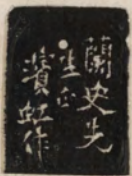 蘭史先
生正
濱虹作